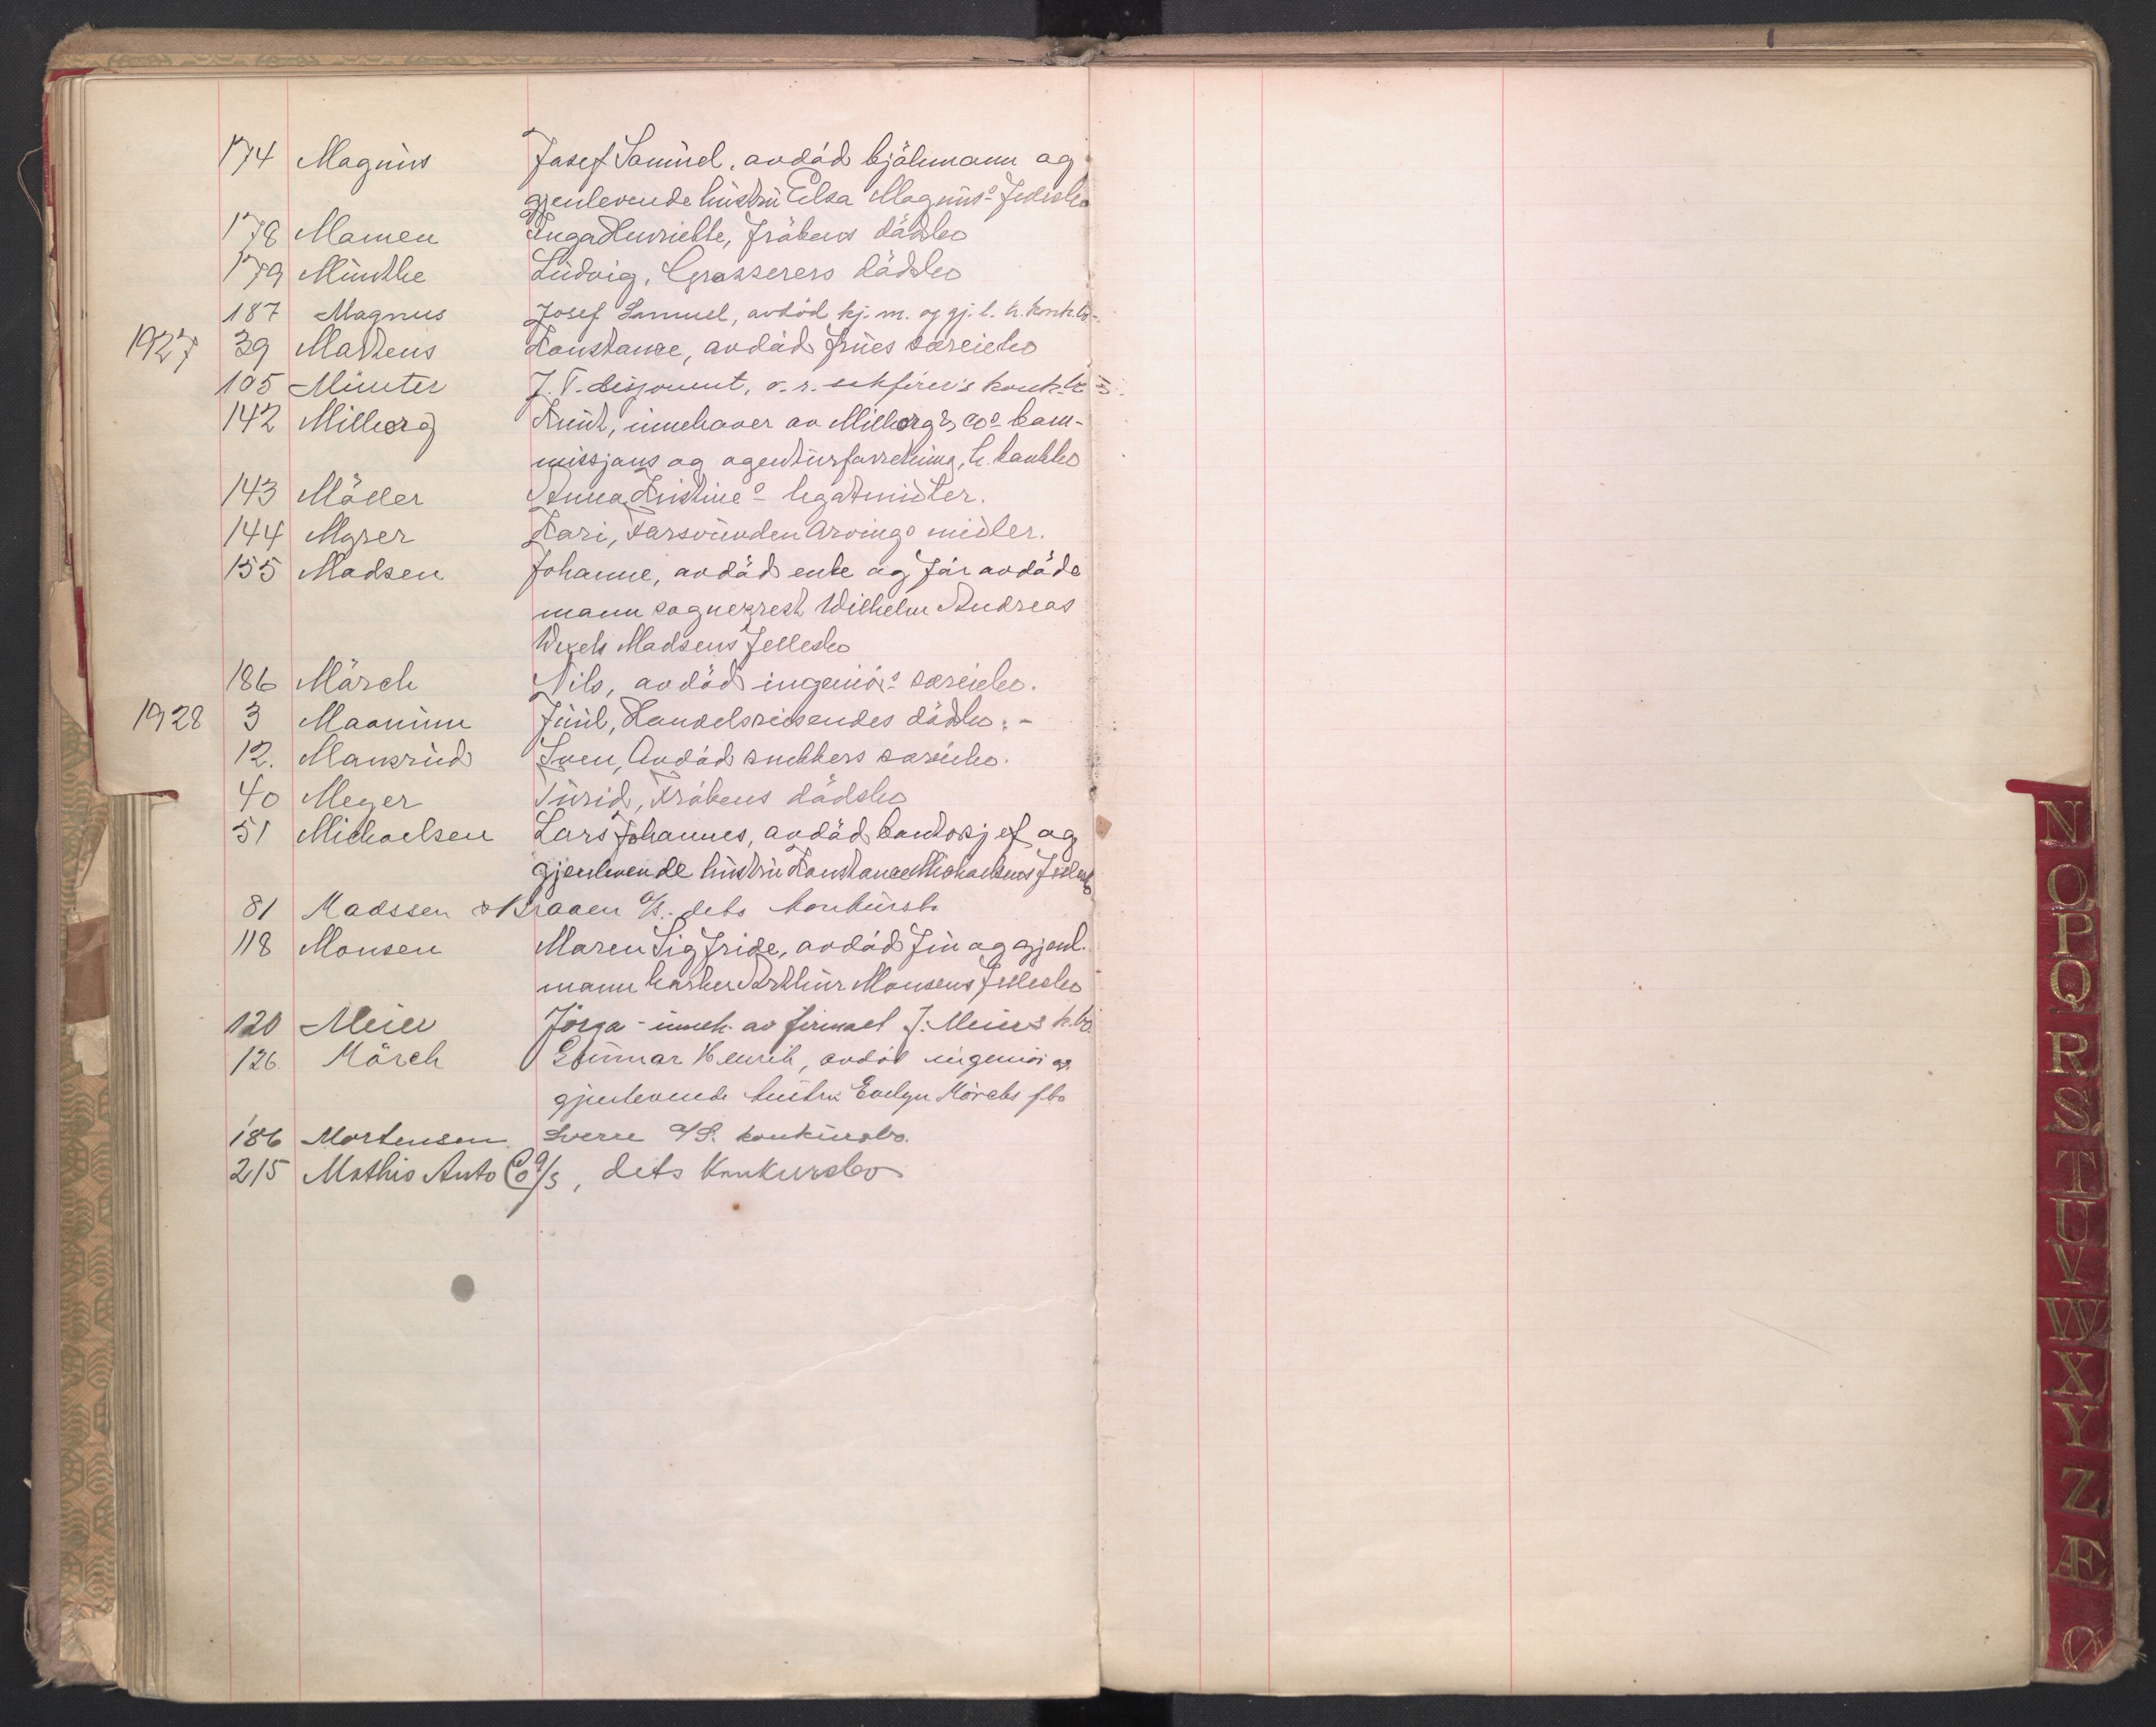 174 Magnus Josef Samuel, avdöd kjöbmann og
gjenlevende hustru Elsa Magnus' fellesbo
178 Mamen Inga Henriette, frökens dödsbo
179 Münthe Ludvig, Grosserers dödsbo
187 Magnus Josef Samuel, avdöd kj. m. og gj. l. h. konk. bo.
1927 39 Martens Konstance, avdöd frues særeiebo
105 Münter J. T. disponent, o.r. sakförer's konk. bo
142 Milberg Knut, innehaver av Milberg & Co's kom-
missjons og agenturforretning, h. konkbo
143 Möller Anna Kristine's legatmidler.
144 Myrer Kari, forsvunden Arvings midler.
155 Madsen Johanne, avdöd enke og för avdöde
mann sogneprest Wilhelm Andreas
Wexels Madsens fellesbo
186 Mörch Nils, avdöd ingeniör's særeiebo.
1928 3 Maanum Juul, Handelsreisendes dödsbo. -
12. Mansrud Sven, Avdöd snekkers særeiebo.
40 Meyer Turid, Frökens dödsbo
51 Michaelsen Lars Johannes, avdöd kontorsjef og
gjenlevende hustru Konstance Michaelsens fellesb
81 Madssen & Braaen A/S. dets konkursb.
118 Monsen Maren Sigfride, avdöd fru og gjenl.
mann Arthur Monsens fellesbo
120 Meier - inneh. av firmaet J. Meiers k.bo.
126. Mörch Gunnar Henrik, avdöd ingeniör og
gjenlevende hustru Evelyn Mörchs f.bo
186 Mortensen Sverre A/S. konkursbo.
215 Mathis Auto Co A/S, dets Konkursbo
N
O
P
Q
R
S
T
U
V
W
X
Y
Z
Æ
Ø